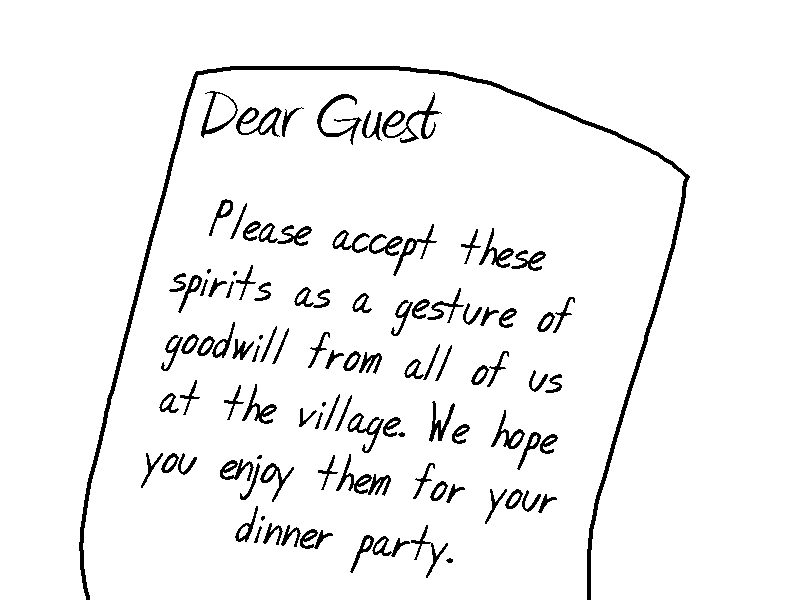 Dear Guest
Please accept these
spirits as a gesture of
goodwill from all of us
at the village. We hope
you enjoy them for your
dinner party.